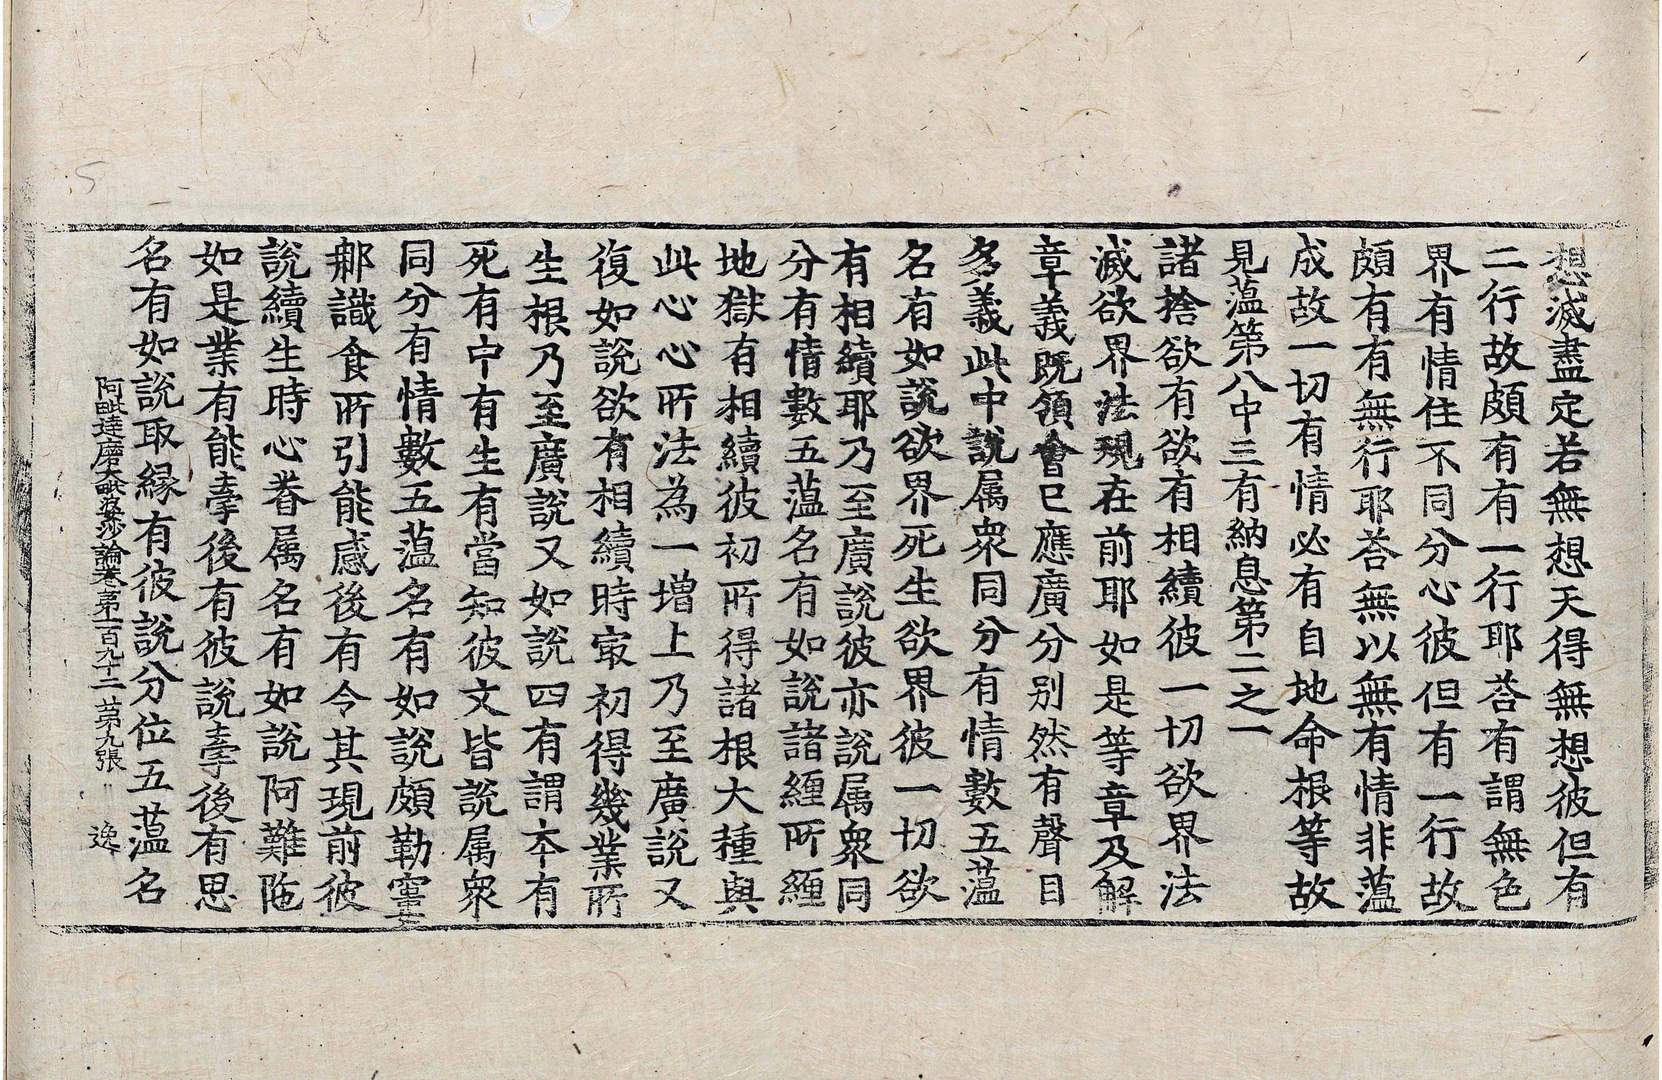 想滅盡定若無想天得無想彼但有
二行故頗有有一行耶荅有謂無色
界有情住不同分心彼但有一行故
頗有有無行耶荅無以無有情非蘊
成故一切有情必有自地命根等故
見蘊第八中三有納息第二之一
諸捨欲有欲有相續彼一切欲界法
滅欲界法現在前耶如是等章及解
章義既領會已應廣分別然有聲目
多義此中說属衆同分有情數五蘊
名有如說欲界死生欲界彼一切欲
有相續耶乃至廣說彼亦說属衆同
分有情數五蘊名有如說諸纏所纏
地獄有相續彼初所得諸根大種與
此心心所法為一增上乃至廣說又
復如說欲有相續時㝡初得幾業所
生根乃至廣說又如說四有謂夲有
死有中有生有當知彼文皆說属衆
同分有情數五蘊名有如說頗勒窶
那識食所引能感後有令其現前彼
說續生時心眷属名有如說阿難陁
如是業有能牽後有彼說牽後有思
名有如說取縁有彼說分位五蘊名
阿毗達磨大毗婆沙論卷第一百九十二 第九張 逸
5